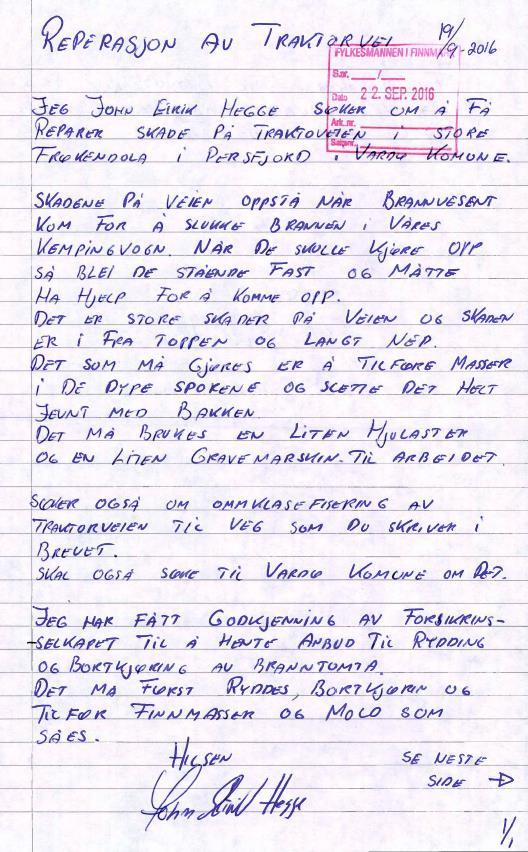 REPERASJON AV TRAKTORVEI
19/
/9-2016
FYLKESMANNEN I FINNMARK
S.nr. /
Dato 22. SEP. 2016
Ark.nr.
JEG JOHN EIRIK HEGGE SØKER OM Å FÅ
REPARER SKADE PÅ TRAKTOVEIEN I STORE
FRØKENDOLA I PERSFJORD I VARDØ KOMUNE.
SKADENE PÅ VEIEN OPPSTÅ NÅR BRANNVESENT
KOM FOR Å SLUKKE BRANNEN I VÅRES
KEMPINGVOGN. NÅR DE SKULLE KJØRE OPP
SÅ BLEI DE STÅENDE FAST OG MÅTTE
HA HJELP FOR Å KOMME OPP.
DET ER STORE SKADER PÅ VEIEN OG SKADEN
ER I FRA TOPPEN OG LANGT NED.
DET SOM MÅ GJØRES ER Å TILFØRE MASSER
I DE DYPE SPORENE OG SLETTE DET HELT
JEVNT MED BAKKEN.
DET MÅ BRUKES EN LITEN HJULASTER
OG EN LITEN GRAVEMARSKIN TIL ARBEIDET
SØKER OGSÅ OM OMMKLASEFISERING AV
TRAKTORVEIEN TIL VEG SOM DU SKRIVER I
BREVET.
SKAL OGSÅ SØKE TIL VARDØ KOMUNE OM DET.
JEG HAR FÅTT GODKJENNING AV FORSIKRIN-
-SELKAPET TIL Å HENTE ANBUD TIL RYDDING
OG BORTKJØRING AV BRANNTOMTA.
DET MÅ FØRST RYDDES, BORTKJØRIN OG
TILFØR FINNMASSER OG MOLD SOM
SÅES.
HILSEN
SE NESTE
SIDE →
John Eirik Hegge
1/1